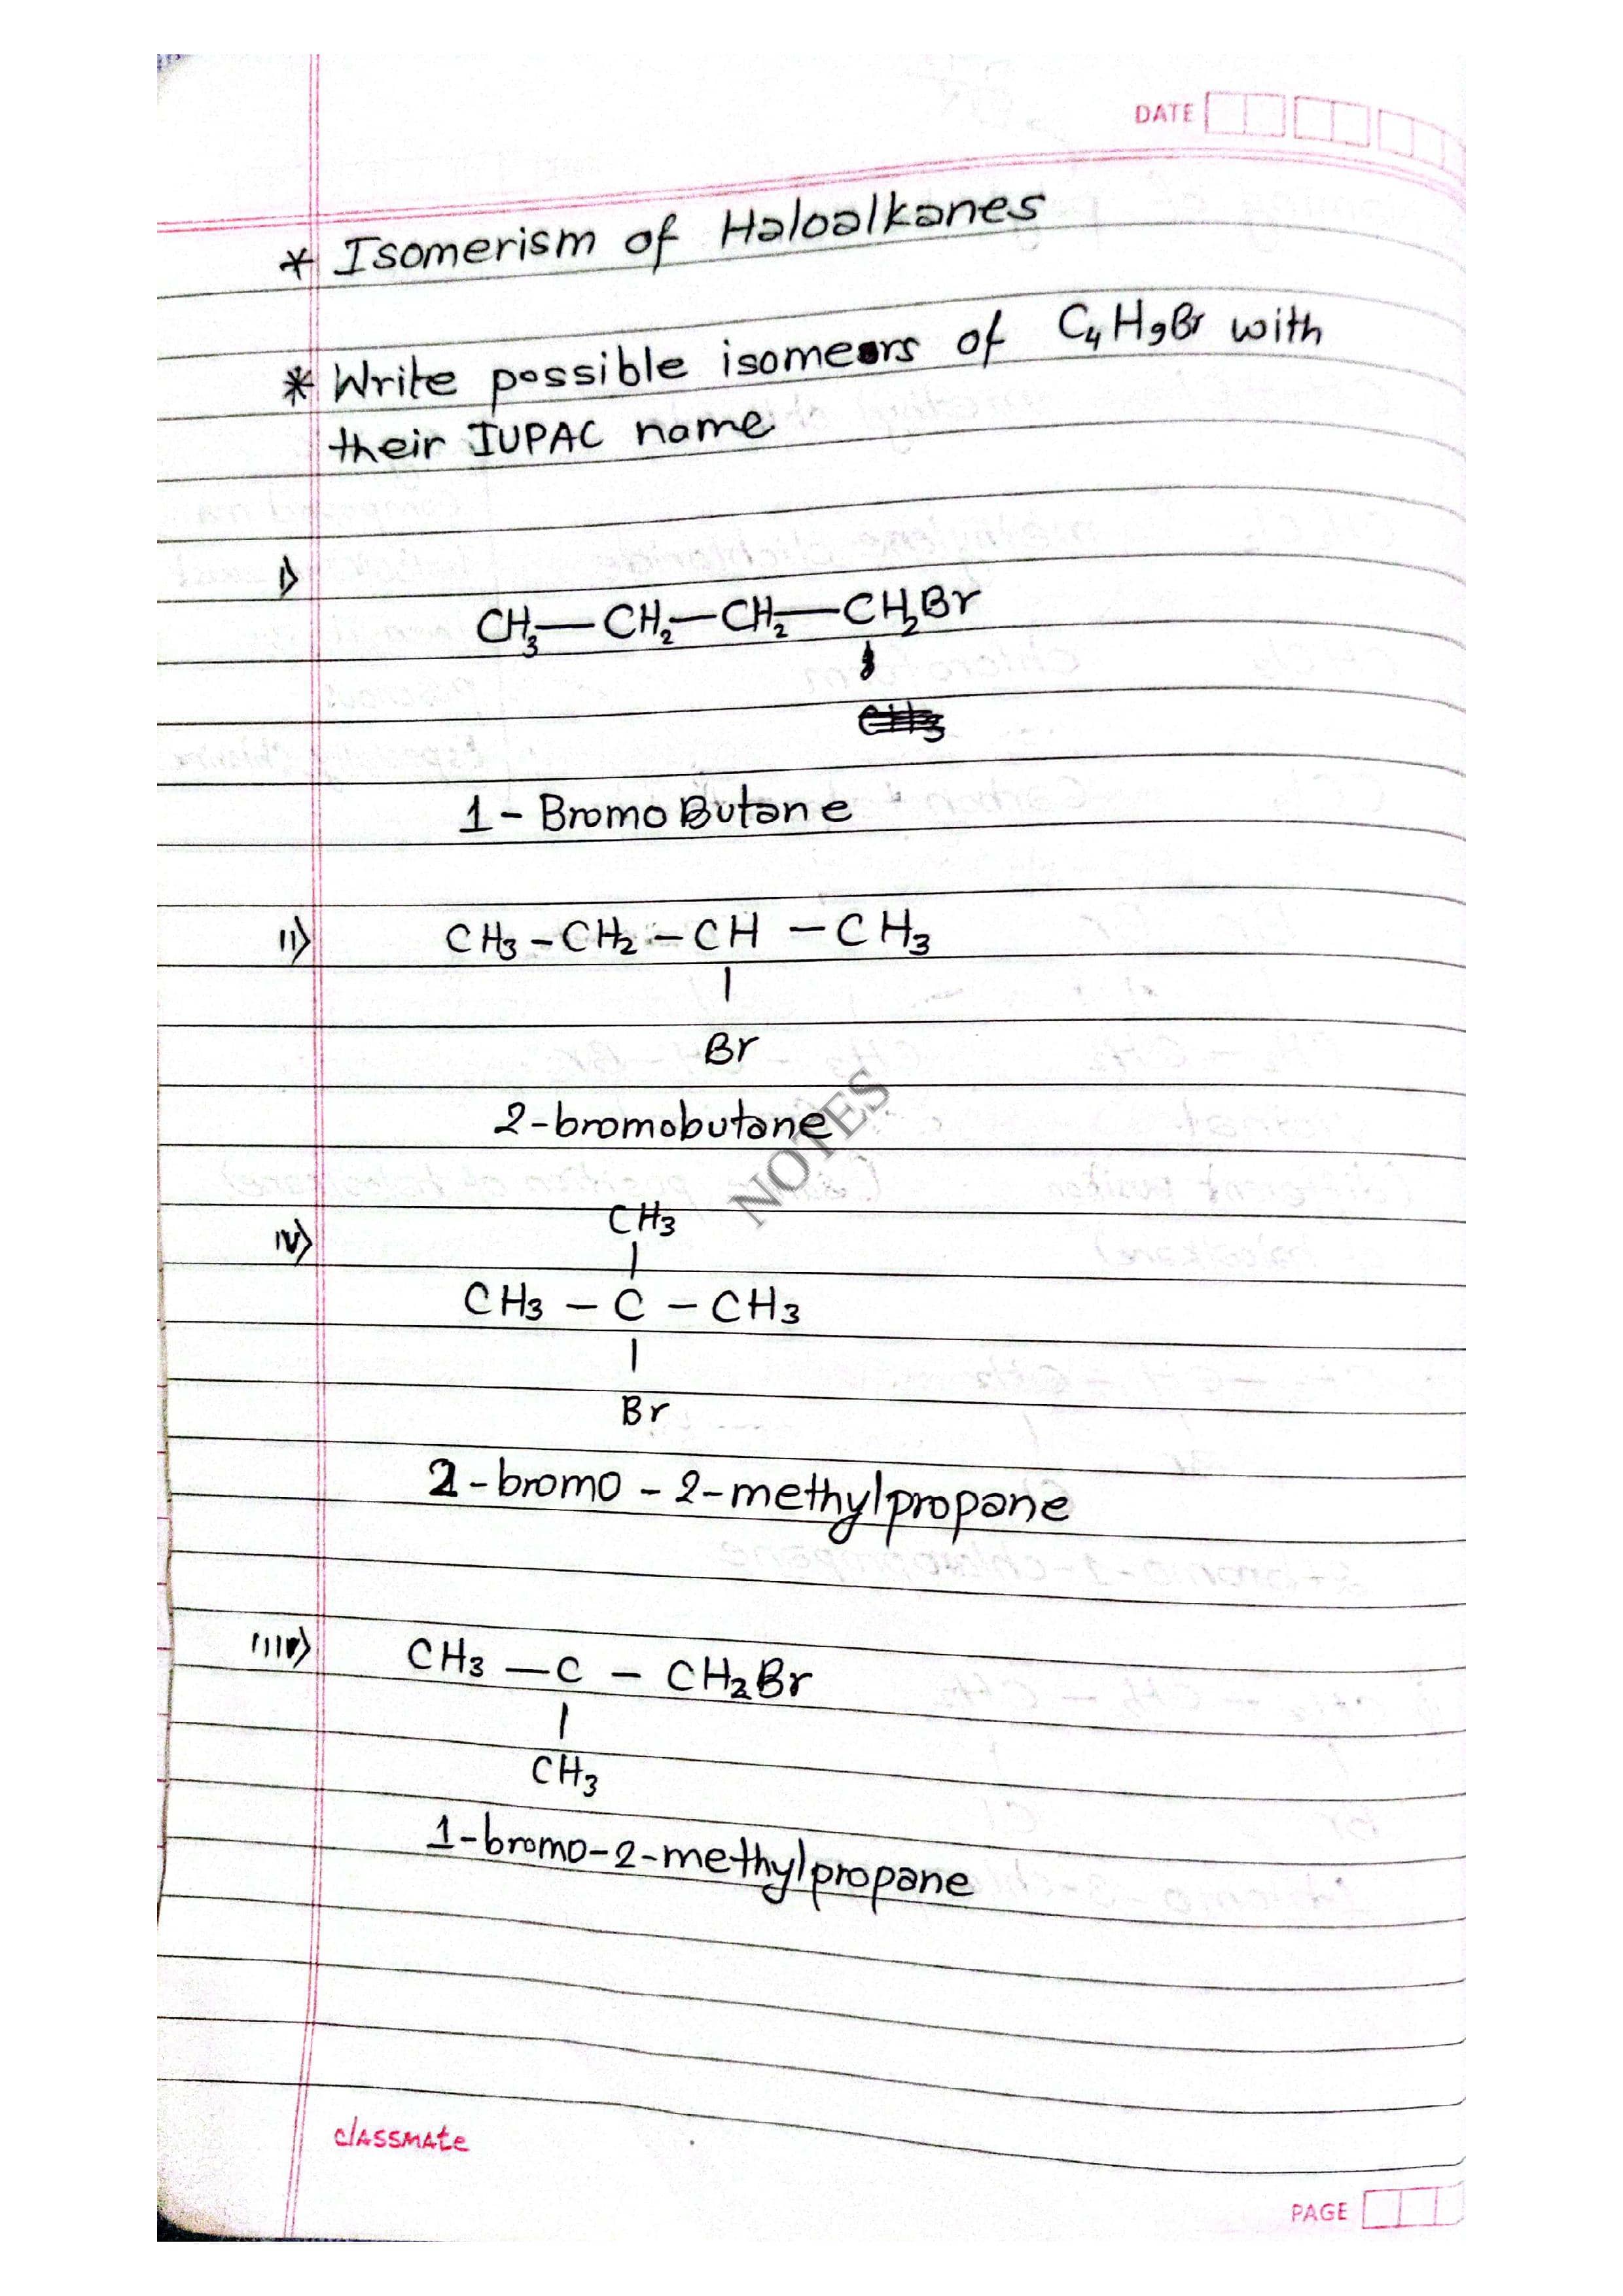 DATE
* Isomerism of Haloalkanes
* Write possible isomers of C₄H₉Br with
their IUPAC name
I)
CH₃—CH₂—CH₂—CH₂Br
1-BromoButane
II) CH₃-CH₂-CH-CH₃
|
Br
2-bromobutane
NOTES
CH₃
IV)
|
CH₃-C-CH₃
|
Br
2-bromo-2-methylpropane
CH₃-C-CH₂Br
|
CH₃
1-bromo-2-methylpropane
classmate
PAGE